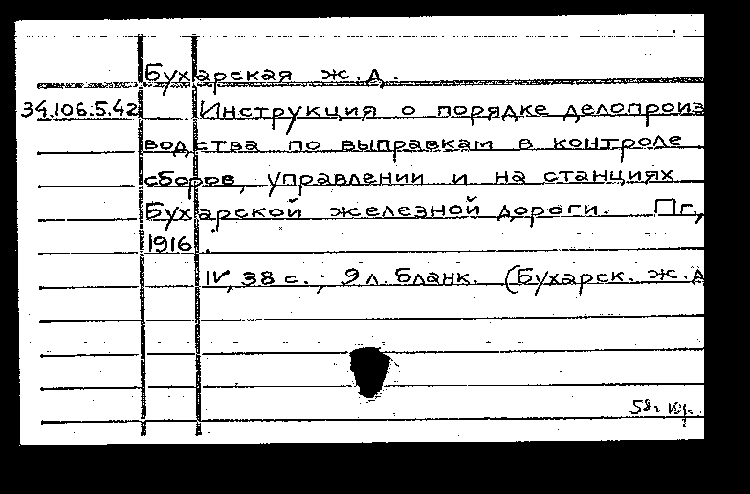 Бухарская ж.д.
34.106.5.42 Инструкция о порядке делопроиз
водства по выправкам в контроле
сборов, управлении и на станциях
Бухарской железной дороги. Пг.,
1916.
IV, 38 с.; 9 л. бланк. (Бухарск. ж.д
58г.